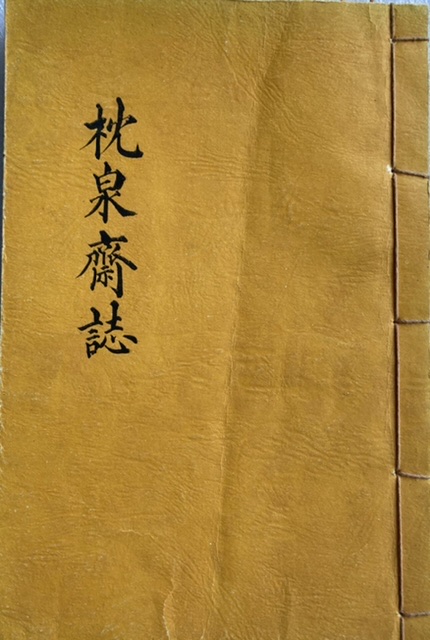 枕泉齋誌